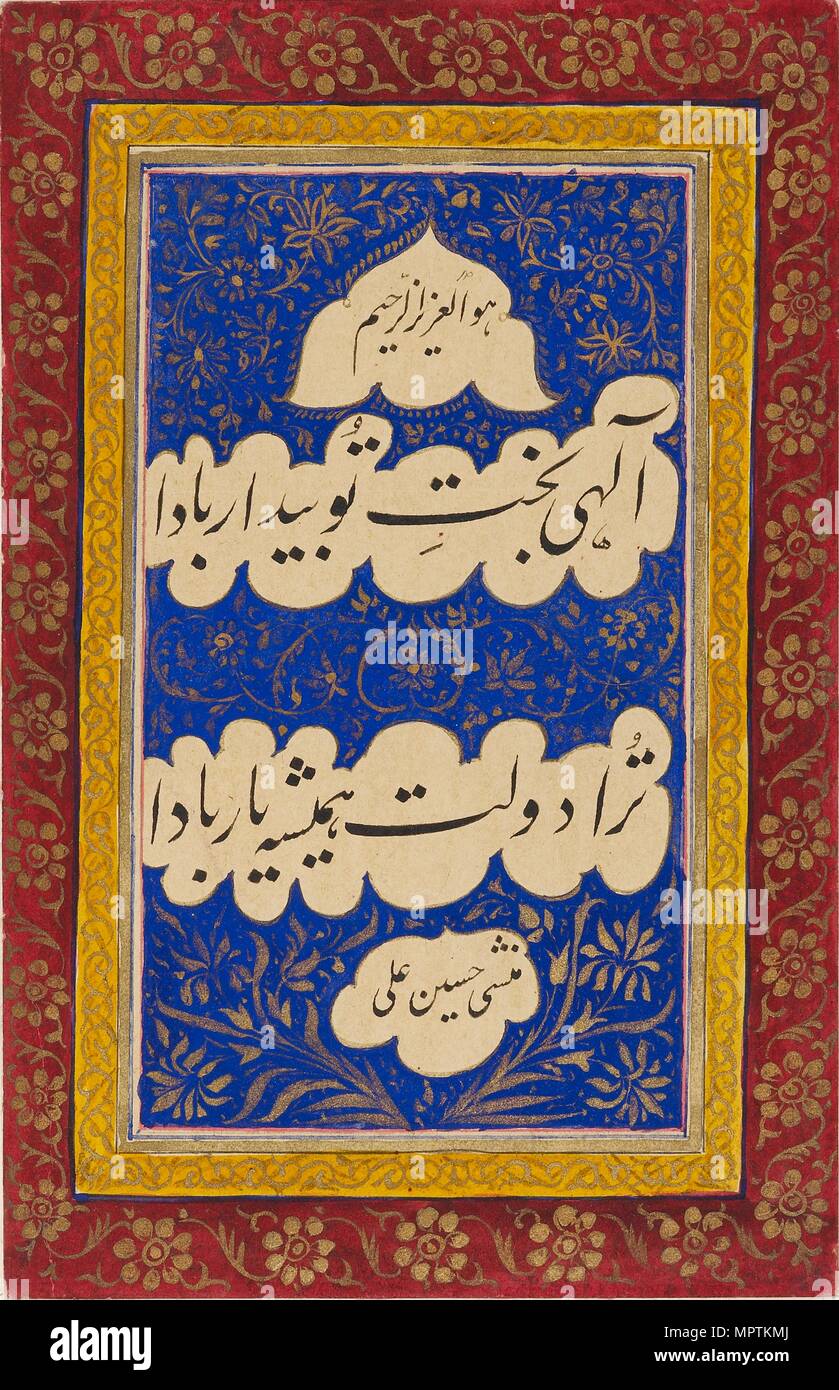 هو العزیز الرحیم
آلهی بختِ تو بیدار بادا
تُرا دولت همیشه یار بادا
منشی حسین علی
alamy
Image ID: MPTKMJ
www.alamy.com